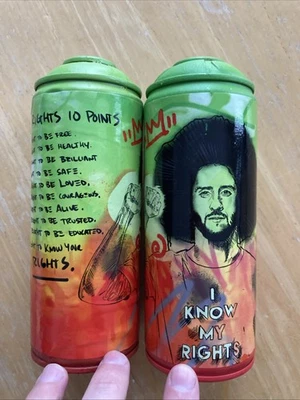 RIGHTS 10 POINTS
TO BE FREE.
TO BE HEALTHY.
TO BE BRILLIANT
TO BE SAFE.
TO BE LOVED.
TO BE COURAGEOUS.
TO BE ALIVE.
TO BE TRUSTED.
TO BE EDUCATED.
TO KNOW YOUR
RIGHTS.
I
KNOW
MY
RIGHTS